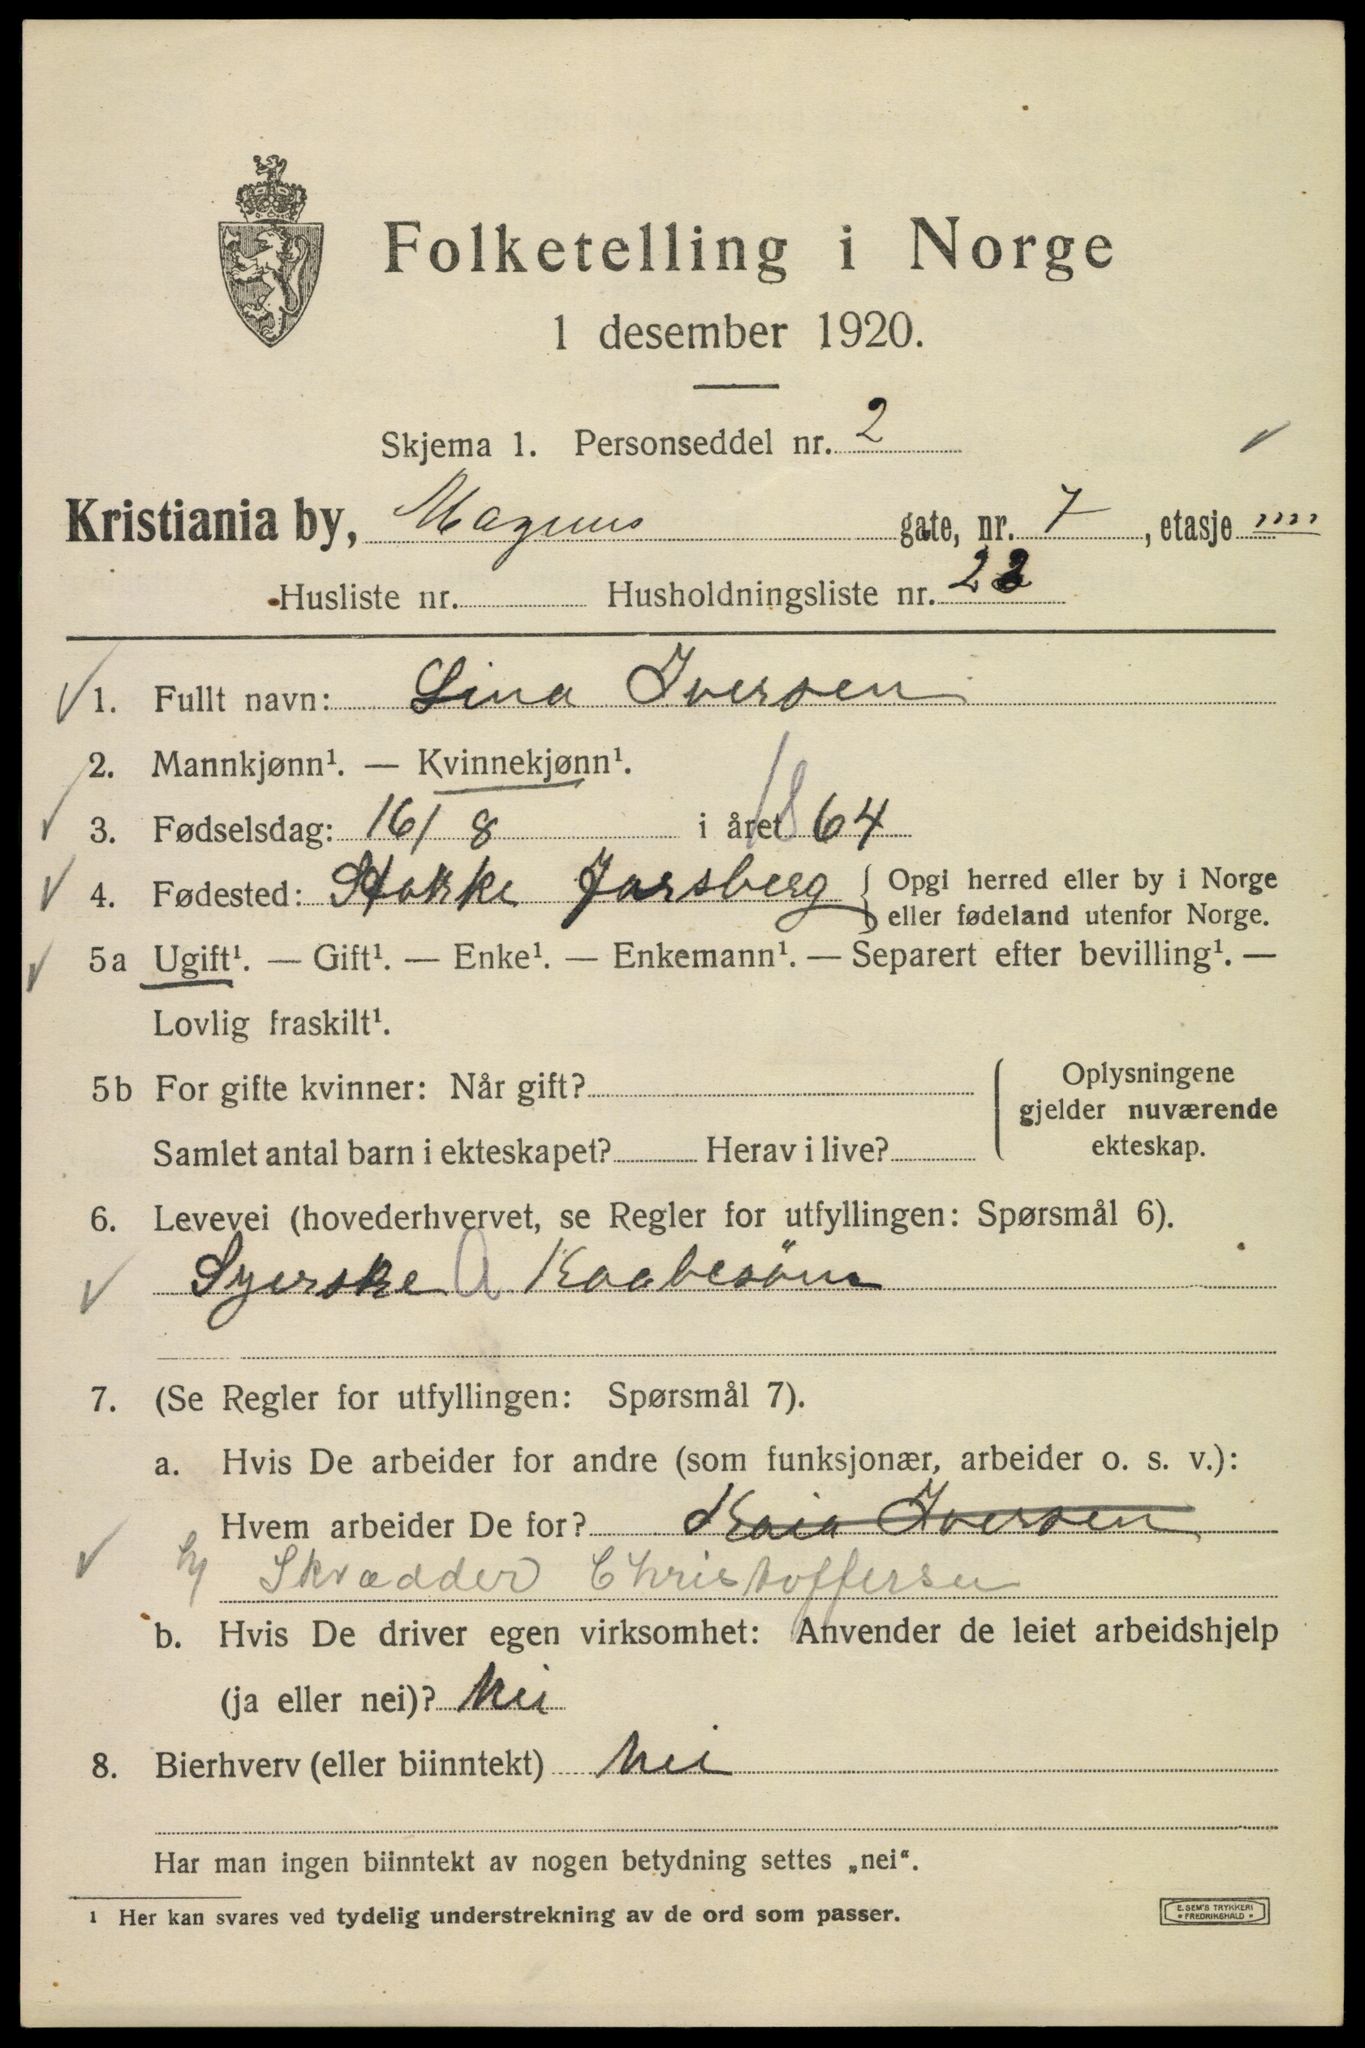 Folketelling i Norge
1 desember 1920.
Skjema 1. Personseddel nr. 2
Kristiania by, Magnus gate, nr. 7, etasje
Husliste nr. Husholdningsliste nr. 22
1. Fullt navn: Lina Iversen
2. Mannkjønn¹. — Kvinnekjønn¹.
3. Fødselsdag: 16/8 i året 1864
4. Fødested: Stokke Jarsberg { Opgi herred eller by i Norge
eller fødeland utenfor Norge.
5a Ugift¹. — Gift¹. — Enke¹. — Enkemann¹. — Separert efter bevilling¹. —
Lovlig fraskilt¹.
5b For gifte kvinner: Når gift?
Samlet antal barn i ekteskapet? Herav i live?
Oplysningene
gjelder nuværende
ekteskap.
6. Levevei (hovederhvervet, se Regler for utfyllingen: Spørsmål 6).
Syerske A Kaabesöm
7. (Se Regler for utfyllingen: Spørsmål 7).
a. Hvis De arbeider for andre (som funksjonær, arbeider o. s. v.):
Hvem arbeider De for? Kaia Iversen
Skrædder Christoffersen
b. Hvis De driver egen virksomhet: Anvender de leiet arbeidshjelp
(ja eller nei)? Nei
8. Bierhverv (eller biinntekt) Nei
Har man ingen biinntekt av nogen betydning settes „nei“.
¹ Her kan svares ved tydelig understrekning av de ord som passer.
E. SEM'S TRYKKERI
FREDRIKSHALD